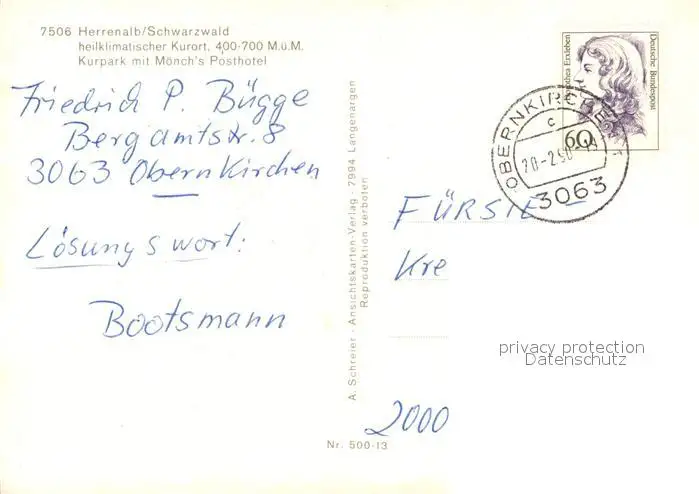 7506 Herrenalb/Schwarzwald
heilklimatischer Kurort, 400-700 M.ü.M.
Kurpark mit Mönch's Posthotel
Friedrich P. Bügge
Bergamtstr. 8
3063 Obernkirchen
Lösungswort:
Bootsmann
A. Schreier · Ansichtskarten-Verlag · 7994 Langenargen
Reproduktion verboten
Nr. 500-13
Deutsche Bundespost
Erxleben
60
OBERNKIRCHEN
c
3063
FÜRSTE
Kre
2000
privacy protection
Datenschutz